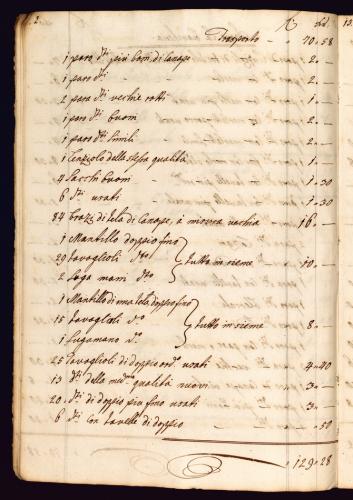 2.
Trasporto — 70.58
1 paro dti più boni di Canape — 2.—
1 paro dti — 2.—
2 para dti vechie rotti — 1.—
1 paro dti buoni — 2.—
1 paro dti simili — 2.—
1 Lenzuolo della stessa qualità — 1.—
4 Sacchi buoni — 1.30
6 dti usati — 1.30
84 brazz: di tela di Canape, à misura vechia — 16.—
1 Mantillo doppio fino
29 tovaglioli dto tutto insieme — 10.—
2 suga mani dto
1 Mantillo di una tela doppio fino
15 tovaglioli do tutto insieme — 8.—
1 sugamano do
25 tovaglioli di doppio ord. usati — 4.40
13 dti della med. qualità nuovi — 3.—
20 dti di doppio più fino usati — 3.—
6 dti di doppio — .50
129.28